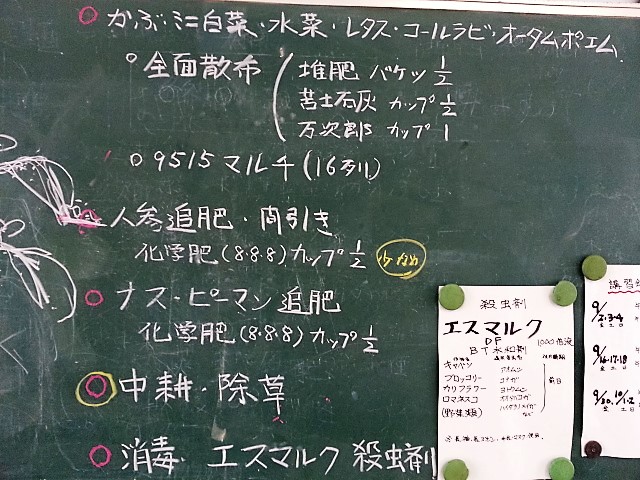 かぶ・ミニ白菜・水菜・レタス・コールラビ・オータムポエム
全面散布
堆肥 バケツ 1/2
苦土石灰 カップ 1/2
万次郎 カップ 1
9515マルチ(16列)
人参追肥・間引き
化学肥(8・8・8)カップ 1/2 少なめ
ナス・ピーマン追肥
化学肥(8・8・8)カップ 1/2
中耕・除草
消毒 エスマルク 殺虫剤
殺虫剤
エスマルク
DF 1000倍液
BT水和剤
キャベツ アオムシ
ブロッコリー コナガ
カリフラワー ヨトウムシ 前日
ロマネスコ
(野菜類)
講習
9/2・3・4
9/16・17・18
9/30, 10/1・2